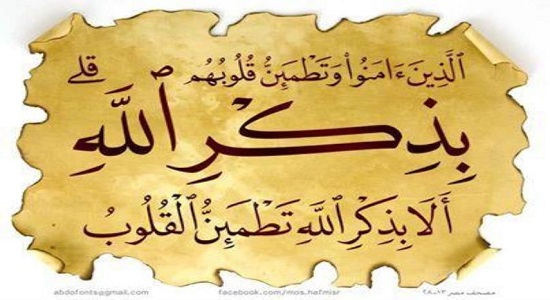 ٱلَّذِينَ ءَامَنُوا۟ وَتَطْمَئِنُّ قُلُوبُهُم
بِذِكْرِ ٱللَّهِ قلے
أَلَا بِذِكْرِ ٱللَّهِ تَطْمَئِنُّ ٱلْقُلُوبُ
abdofonts@gmail.com facebook.com/mos.hafmisr مصحف مصر